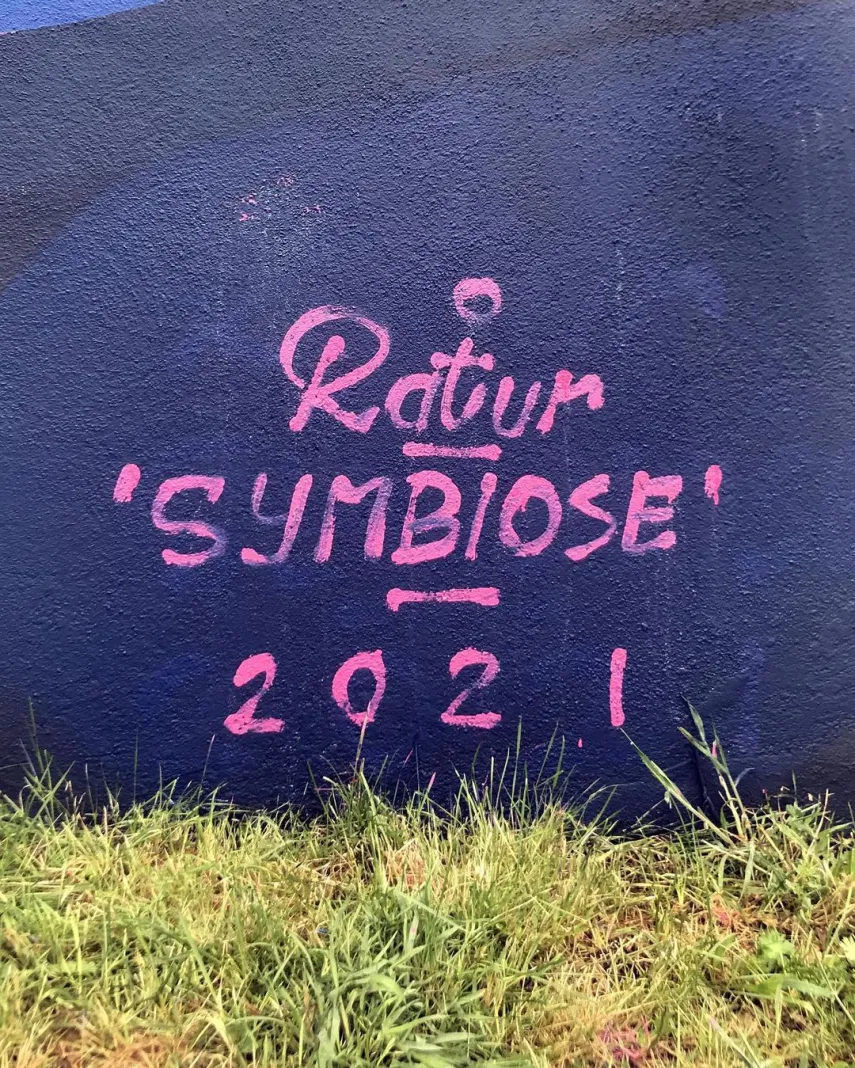 Ratur
'SYMBIOSE'
2021